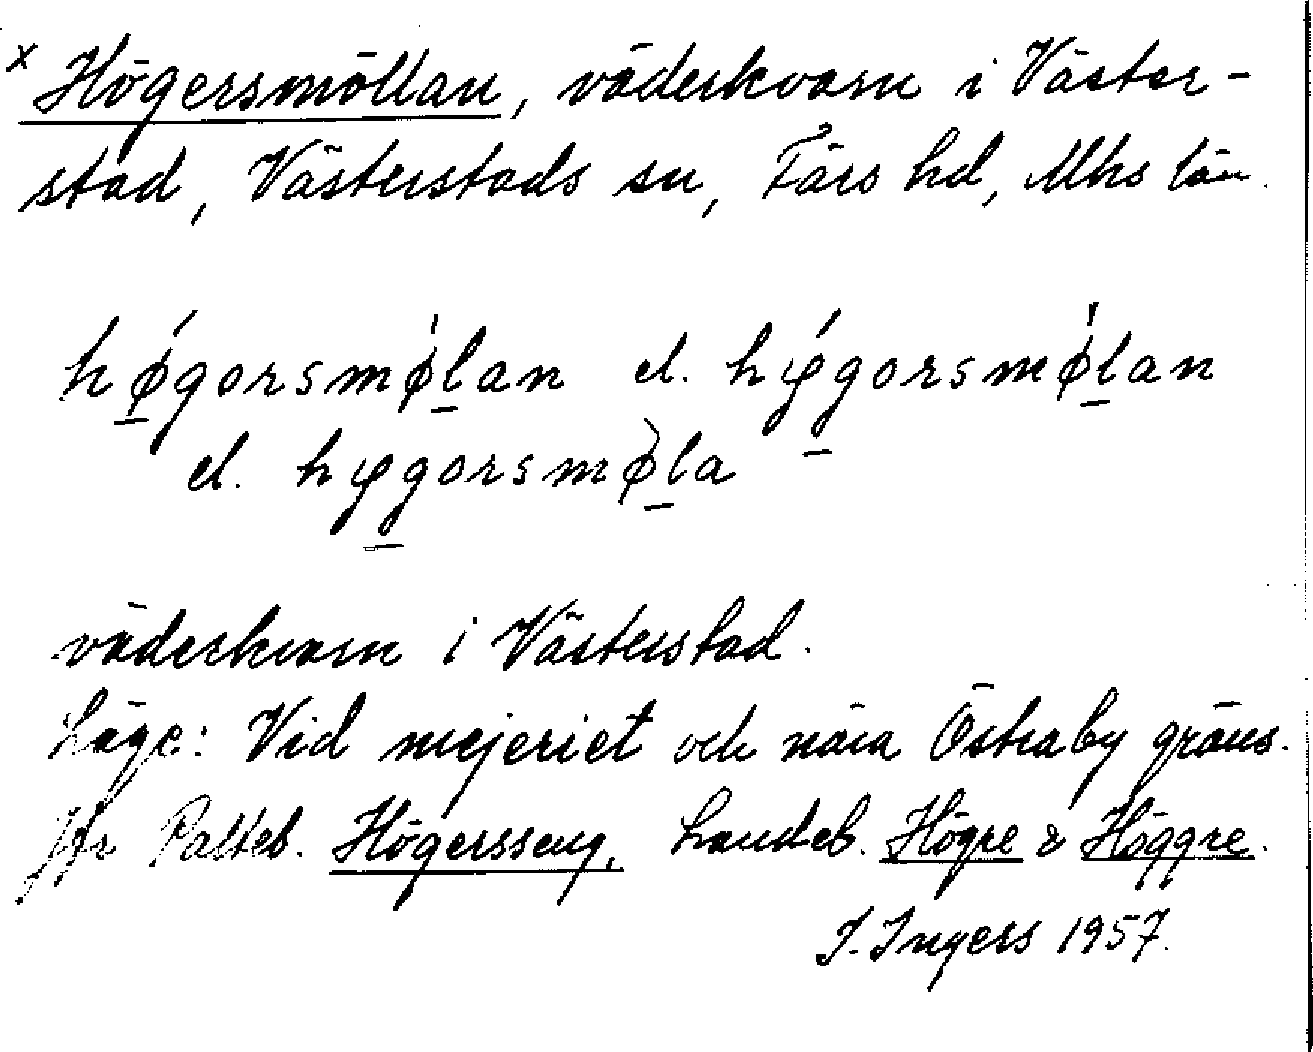 x Högersmöllan, väderkvarn i Väster-
stad, Västerstads sn, Färs hd, Mhs län.
hǿgorsmø̍lan el. hǿgorsmø̍lan
el. høgorsmøla
väderkvarn i Västerstad.
Läge: Vid mejeriet och nära Östraby gräns.
Jfr Palteb. Högersseng, Landeb. Högre & Höggre.
I. Ingers 1957.